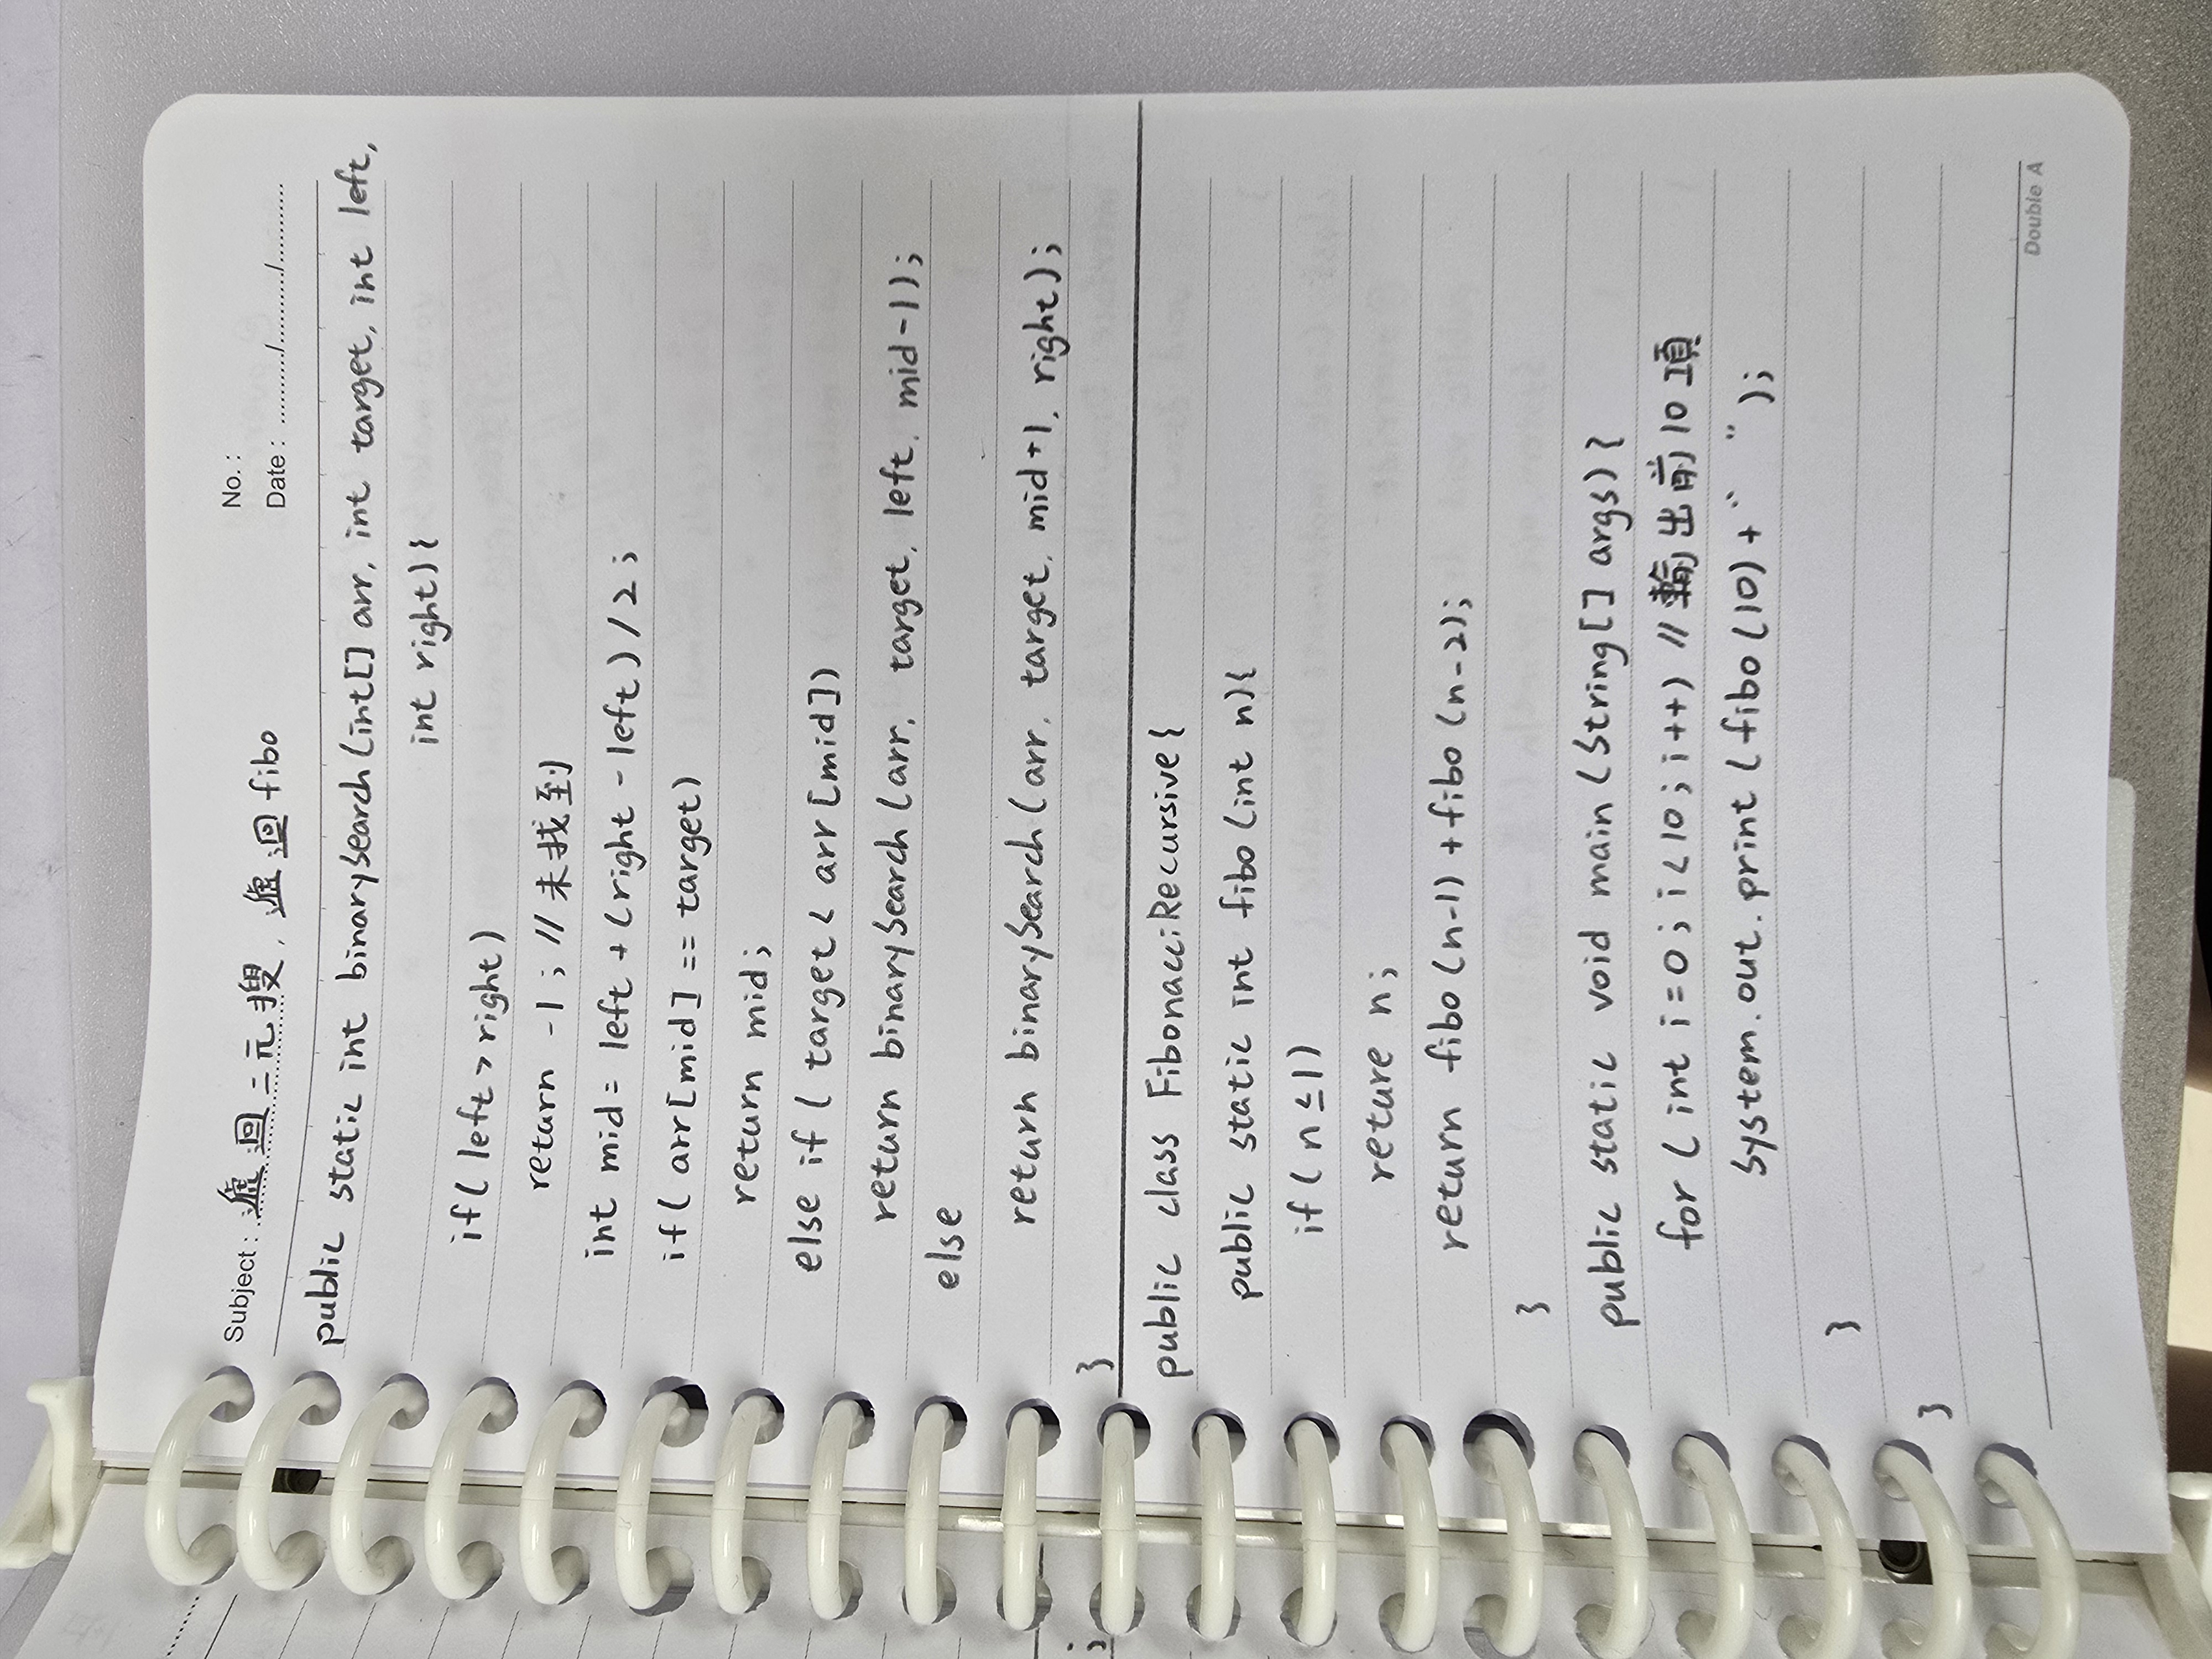 Subject: 遞迴二元搜, 遞迴fibo
No.:
Date: ......../......../........
public static int binarySearch(int[] arr, int target, int left,
int right){
if(left>right)
return -1; //未找到
int mid= left+(right-left)/2;
if(arr[mid]==target)
return mid;
else if(target<arr[mid])
return binarySearch(arr, target, left, mid-1);
else
return binarySearch(arr, target, mid+1, right);
}
public class FibonacciRecursive{
public static int fibo(int n){
if(n≤1)
reture n;
return fibo(n-1)+fibo(n-2);
}
public static void main(String[] args){
for(int i=0;i<10;i++) //輸出前10項
System.out.print(fibo(10)+" ");
}
}
Double A